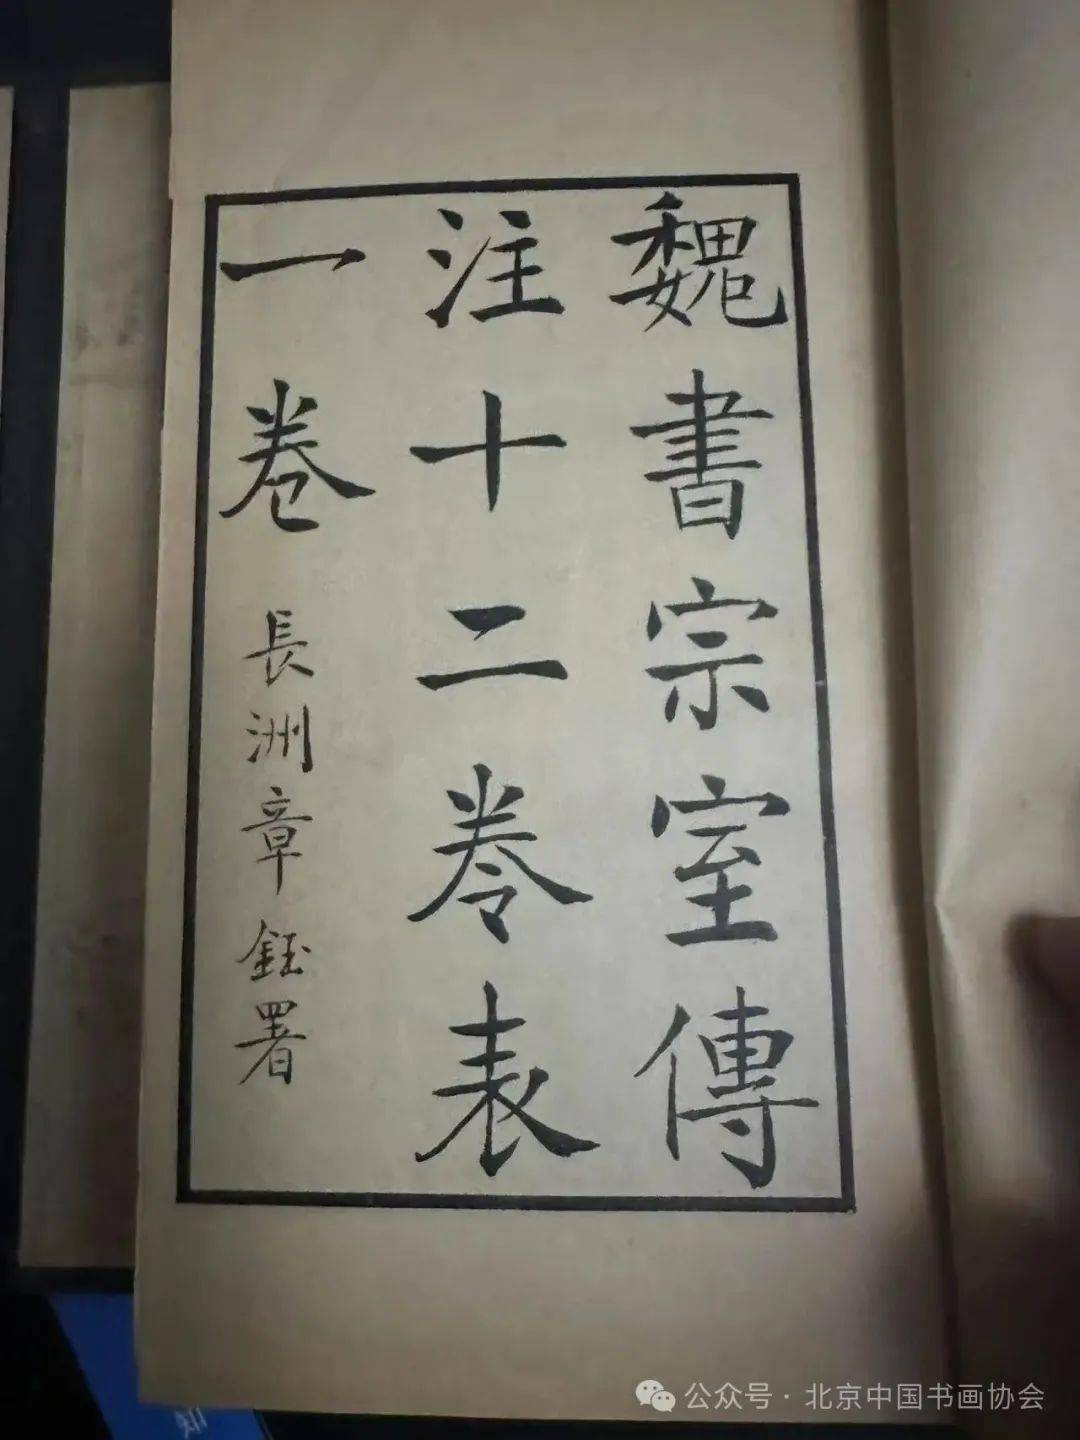 魏書宗室傳
注十二卷表
一卷
長洲章鈺署
知
公众号·北京中国书画协会